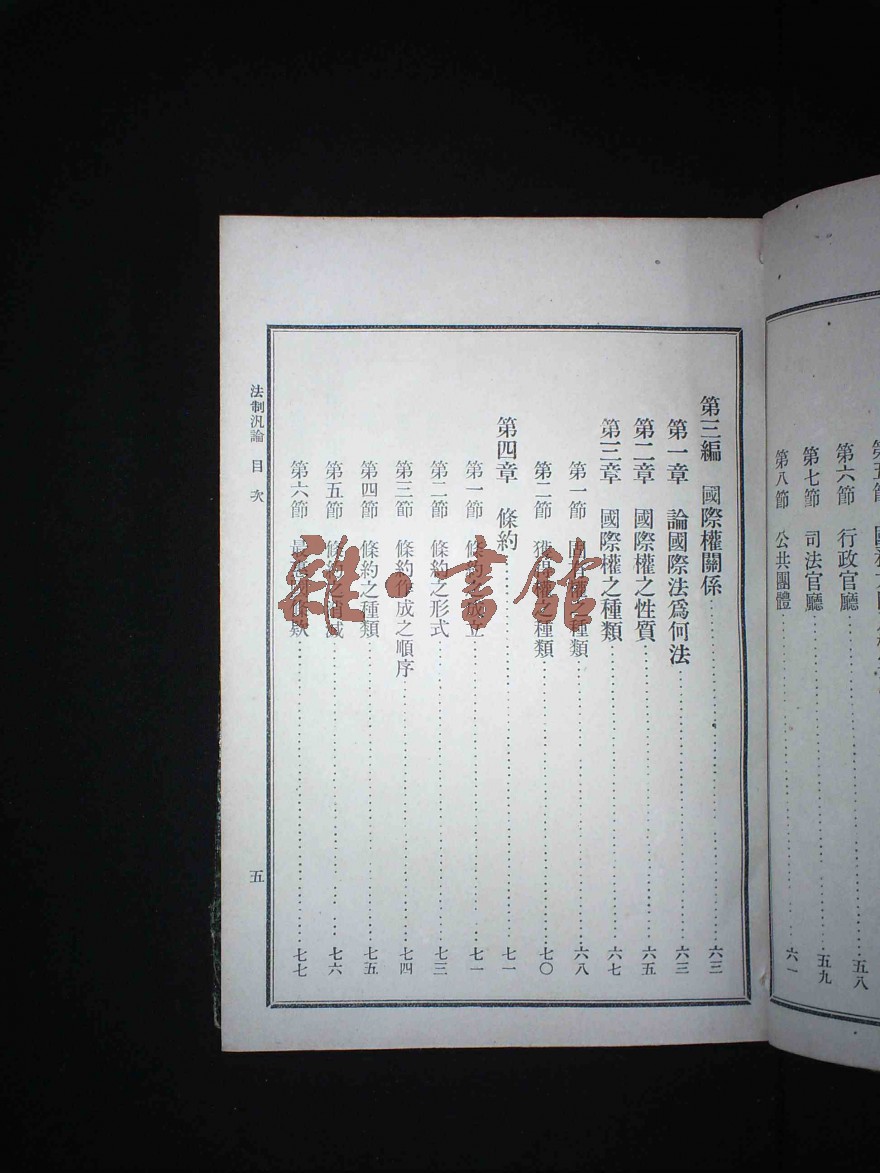 第五節
第六節 行政官廳……五八
第七節 司法官廳……五九
第八節 公共團體……六一
第三編 國際權關係……六三
第一章 論國際法爲何法……六三
第二章 國際權之性質……六五
第三章 國際權之種類……六七
第一節 固有權之種類……六八
第二節 獲得權之種類……七〇
第四章 條約……七一
第一節 條約之成立……七一
第二節 條約之形式……七三
第三節 條約作成之順序……七四
第四節 條約之種類……七五
第五節 條約之消滅……七六
第六節 最惠國條欵……七七
法制汎論 目次
五
雜·書館